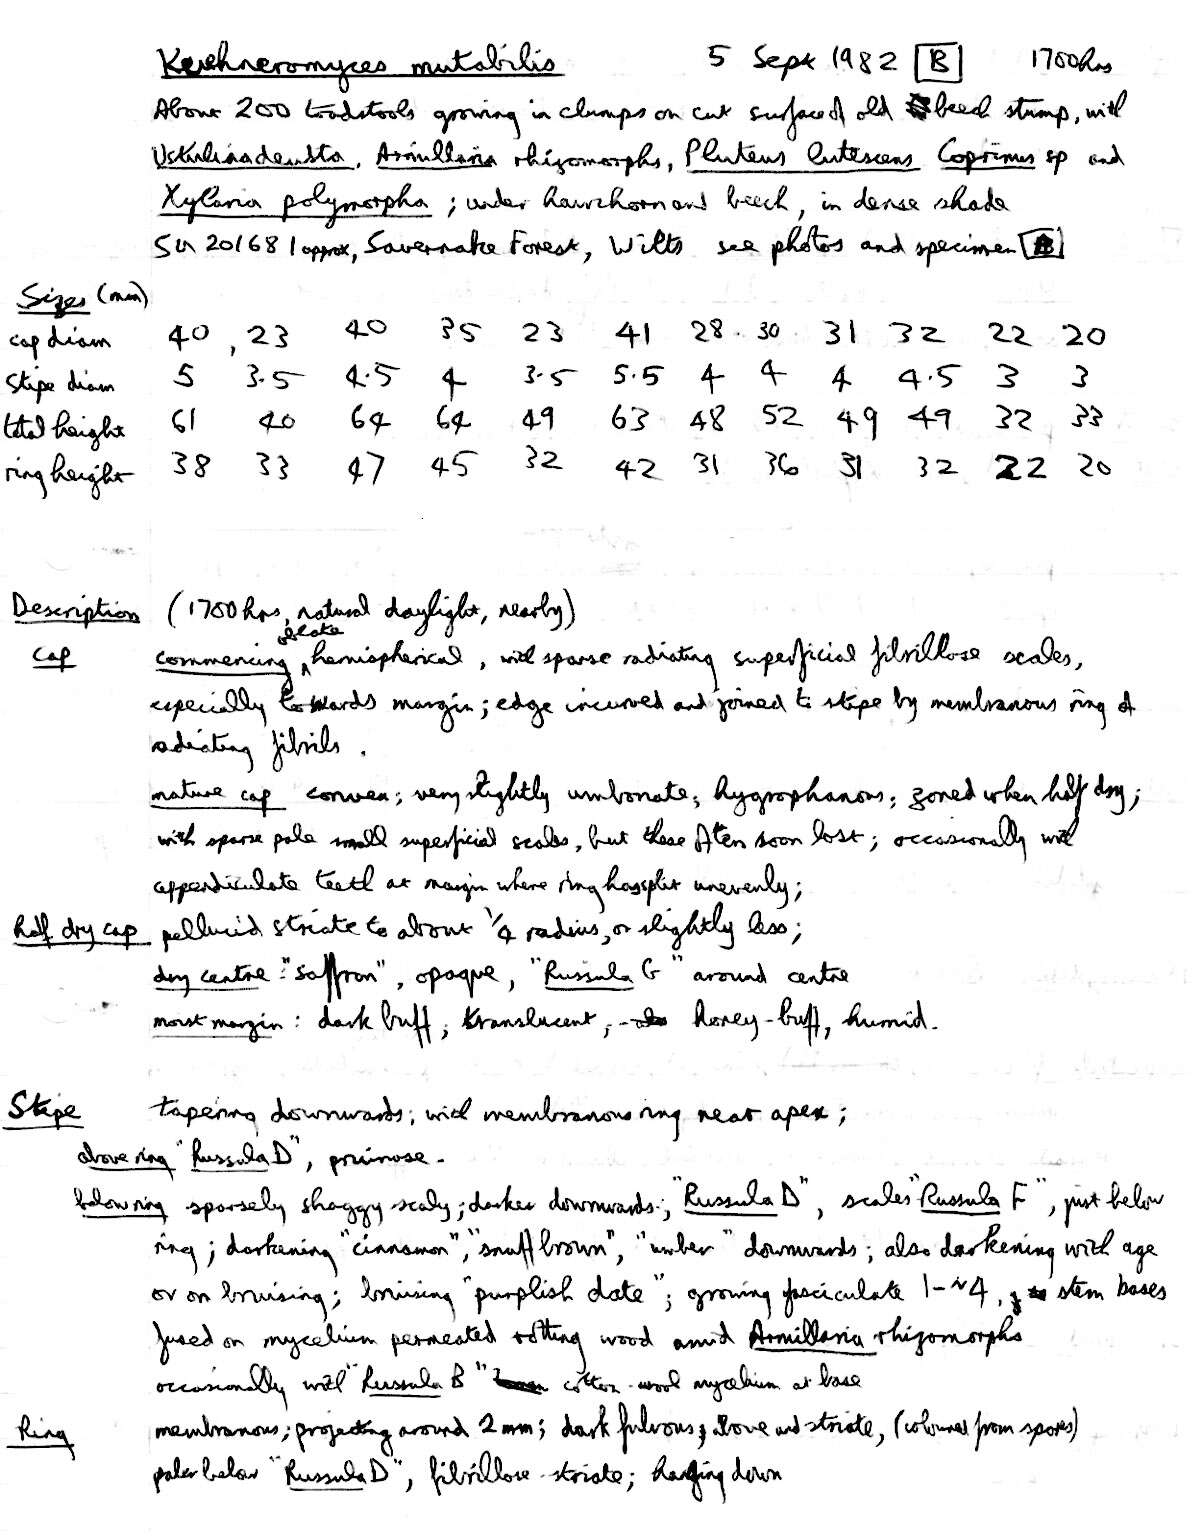 Kuehneromyces mutabilis 5 Sept 1982 B 1700hrs
About 200 toadstools growing in clumps on cut surface of old beech stump, with
Ustulina deusta, Armillaria rhizomorphs, Pluteus lutescens Coprinus sp and
Xylaria polymorpha; under hawthorn and beech, in dense shade
SU 201681 approx, Savernake Forest, Wilts see photos and specimen B
Sizes (mm)
cap diam 40, 23 40 35 23 41 28 30 31 32 22 20
Stipe diam 5 3.5 4.5 4 3.5 5.5 4 4 4 4.5 3 3
total height 61 40 64 64 49 63 48 52 49 49 32 33
ring height 38 33 47 45 32 42 31 36 31 32 22 20
Description (1700hrs, natural daylight, nearby)
oblate
Cap commencing hemispherical, with sparse radiating superficial fibrillose scales,
especially towards margin; edge incurved and joined to stipe by membranous ring of
radiating fibrils.
mature cap convex; very slightly umbonate; hygrophanous; zoned when half dry;
with sparse pale small superficial scales, but these often soon lost; occasionally with
appendiculate teeth at margin where ring has split unevenly;
Half dry cap pellucid striate to about 1/4 radius, or slightly less;
dry centre: "saffron", opaque, "Russula G" around centre
moist margin: dark buff, translucent, honey-buff, humid.
Stipe tapering downwards; with membranous ring near apex;
above ring "Russula D", pruinose.
below ring sparsely shaggy scaly; darker downwards; "Russula D", scales "Russula F", just below
ring; darkening "cinnamon", "snuff brown", "umber" downwards; also darkening with age
or on bruising; bruising "purplish date"; growing fasciculate 1-~4, stem bases
fused on mycelium permeated rotting wood amid Armillaria rhizomorphs
occasionally with "Russula B" cotton-wool mycelium at base
Ring membranous; projecting around 2mm; dark fulvous above and striate, (coloured from spores)
paler below "Russula D", fibrillose-striate; hanging down